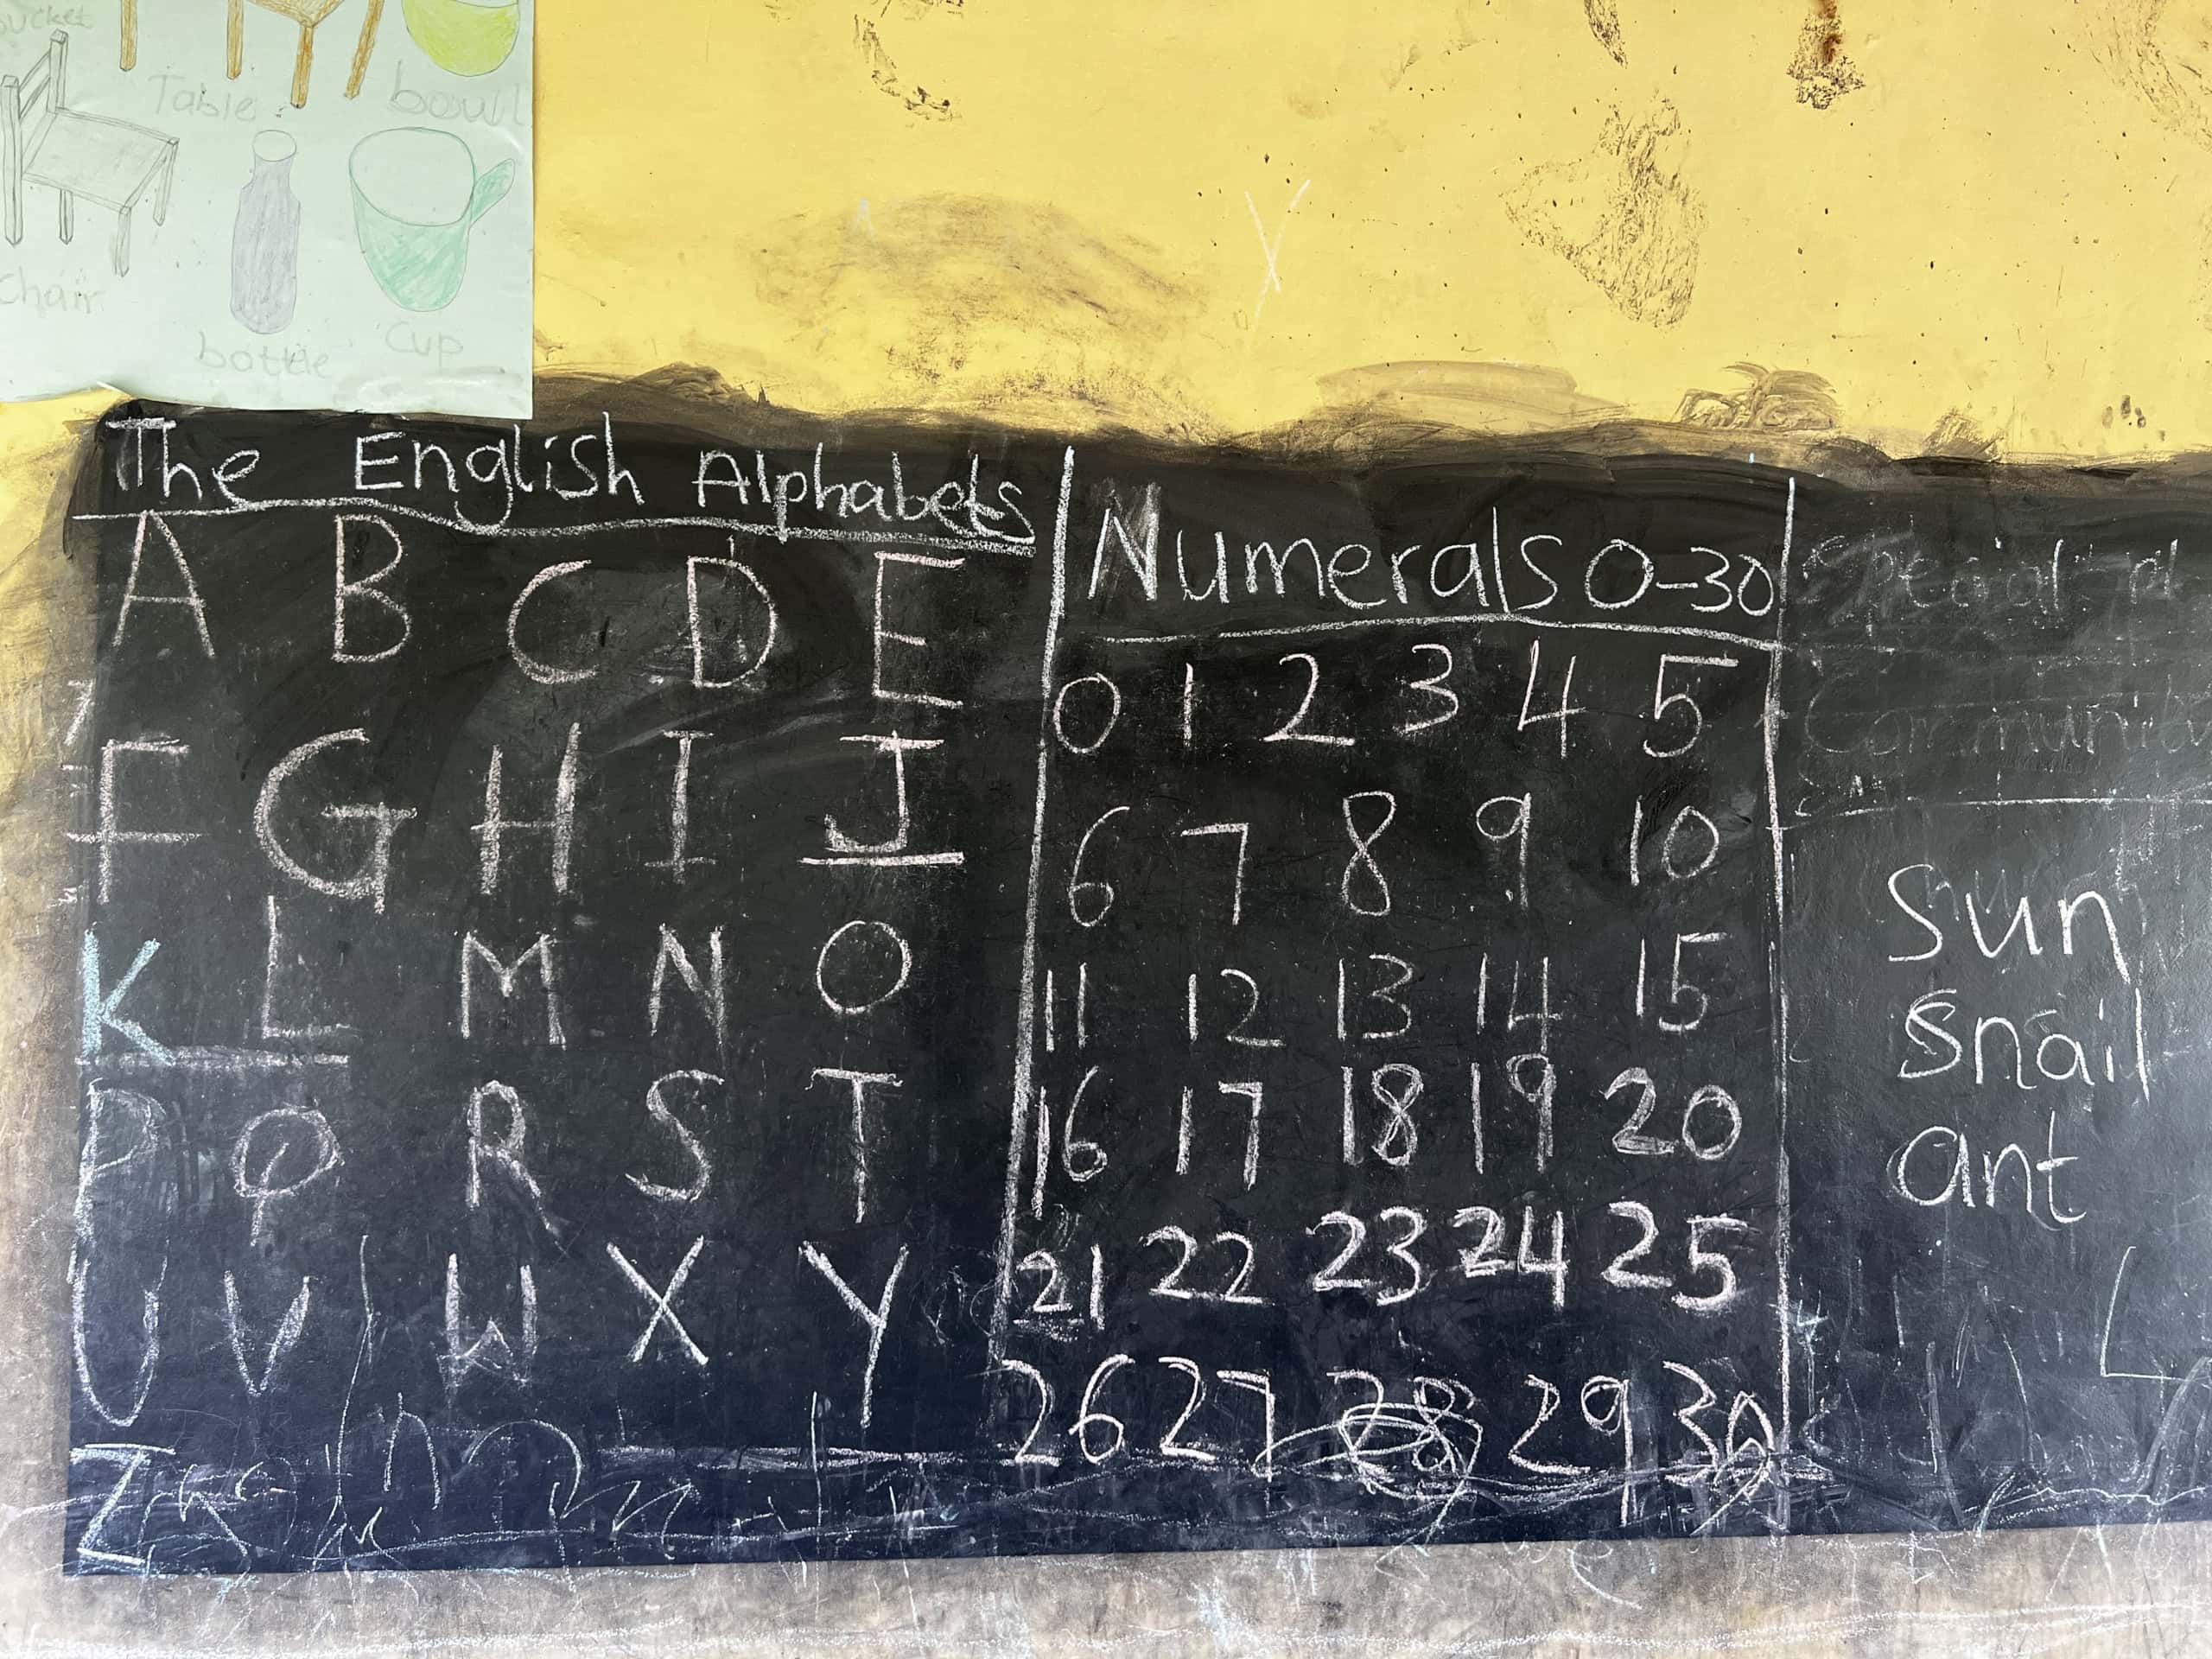 bucket
Table bowl
Chair
bottle Cup
The English Alphabets
A B C D E
F G H I J
K L M N O
P Q R S T
U V W X Y
Z
Numerals 0-30
0 1 2 3 4 5
6 7 8 9 10
11 12 13 14 15
16 17 18 19 20
21 22 23 24 25
26 27 28 29 30
Sun
Snail
ant